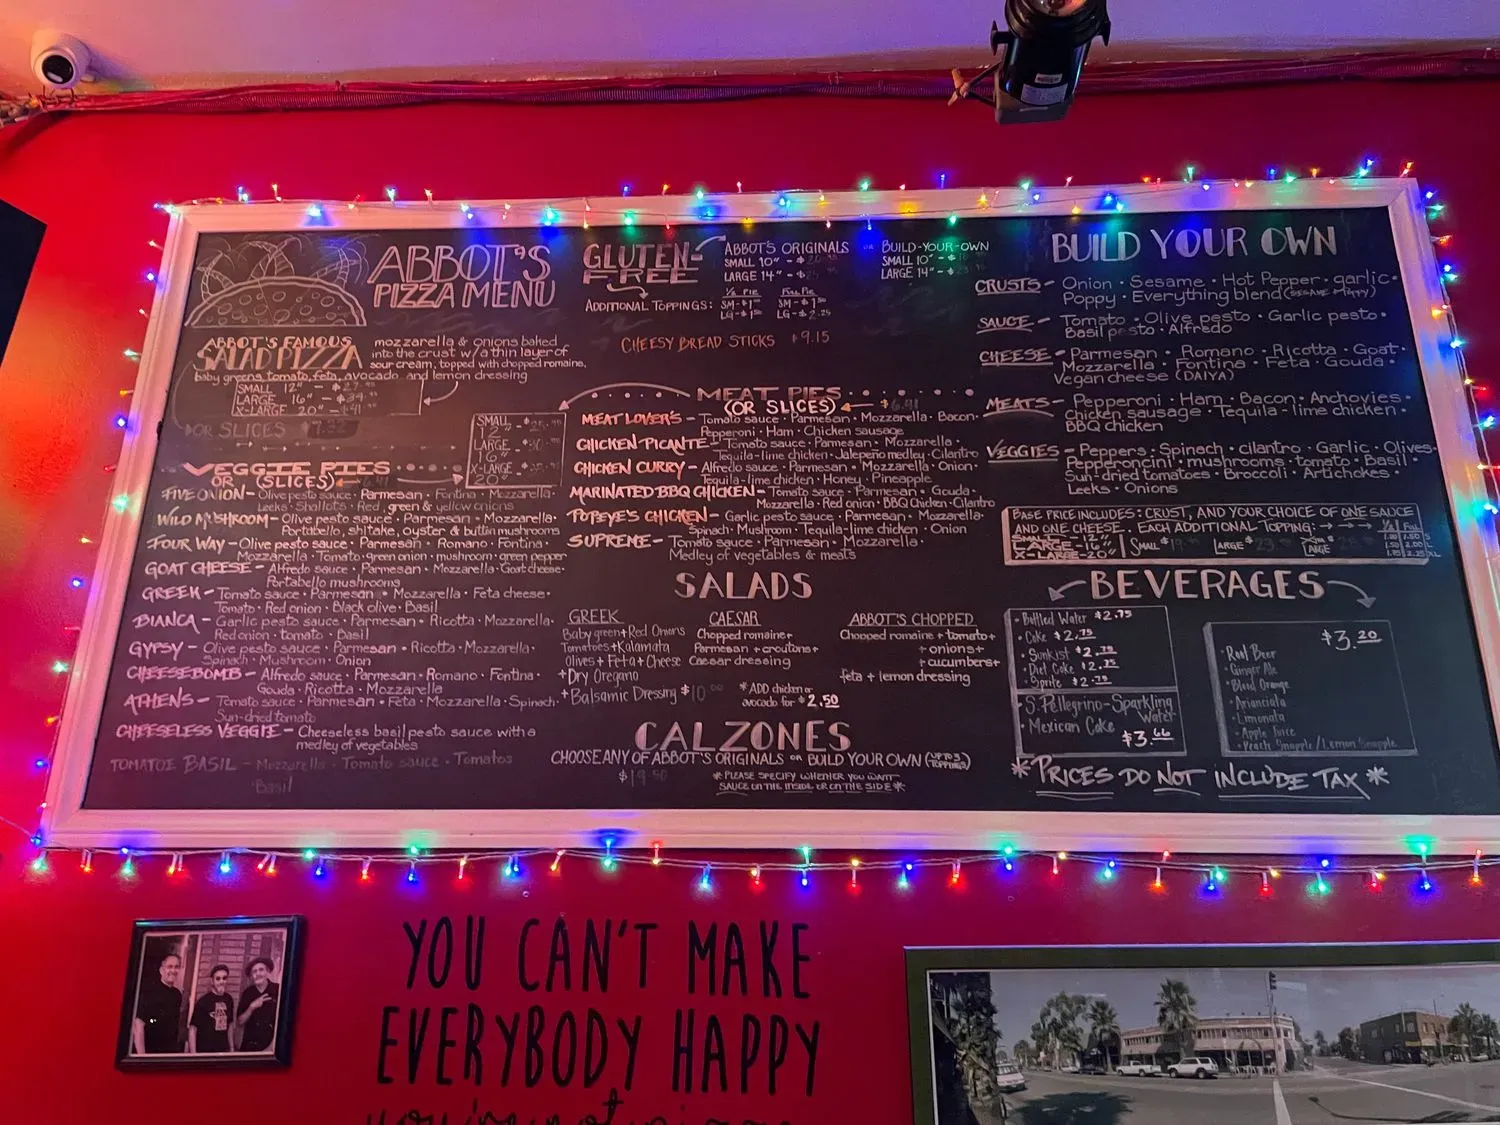 ABBOT'S
PIZZA MENU
ABBOT'S FAMOUS
SALAD PIZZA
mozzarella & onions baked
into the crust w/a thin layer of
sour cream, topped with chopped romaine,
baby greens, tomato, feta, avocado and lemon dressing
SMALL 12" -
LARGE 16" -
X-LARGE 20" -
OR SLICES
VEGGIE PIES
OR (SLICES)
SMALL
12"
LARGE
16"
X-LARGE
20"
FIVE ONION - Olive pesto sauce · Parmesan · Fontina · Mozzarella ·
Leeks · Shallots · Red, green & yellow onions
WILD MUSHROOM - Olive pesto sauce · Parmesan · Mozzarella ·
Portabello, shitake, oyster & button mushrooms
FOUR WAY - Olive pesto sauce · Parmesan · Romano · Fontina ·
Mozzarella · Tomato · green onion · mushroom · green pepper
GOAT CHEESE - Alfredo sauce · Parmesan · Mozzarella · Goat cheese ·
Portabello mushrooms
GREEK - Tomato sauce · Parmesan · Mozzarella · Feta cheese ·
Tomato · Red onion · Black olive · Basil
BIANCA - Garlic pesto sauce · Parmesan · Ricotta · Mozzarella ·
Red onion · tomato · Basil
GYPSY - Olive pesto sauce · Parmesan · Ricotta · Mozzarella ·
Spinach · Mushroom · Onion
CHEESEBOMB - Alfredo sauce · Parmesan · Romano · Fontina ·
Gouda · Ricotta · Mozzarella
ATHENS - Tomato sauce · Parmesan · Feta · Mozzarella · Spinach ·
Sun-dried tomato
CHEESELESS VEGGIE - Cheeseless basil pesto sauce with a
medley of vegetables
TOMATOE BASIL - Mozzarella · Tomato sauce · Tomatos
Basil
GLUTEN-
FREE
ABBOT'S ORIGINALS OR BUILD-YOUR-OWN
SMALL 10" - $
LARGE 14" - $
SMALL 10" -
LARGE 14" -
ADDITIONAL TOPPINGS:
½ PIE FULL PIE
SM - $1
LG - $1.50
SM - $1.50
LG - $2.25
CHEESY BREAD STICKS $9.15
MEAT PIES
(OR SLICES)
MEAT LOVER'S - Tomato sauce · Parmesan · Mozzarella · Bacon ·
Pepperoni · Ham · Chicken sausage
CHICKEN PICANTE - Tomato sauce · Parmesan · Mozzarella ·
Tequila-lime chicken · Jalapeño medley · Cilantro
CHICKEN CURRY - Alfredo sauce · Parmesan · Mozzarella · Onion ·
Tequila-lime chicken · Honey · Pineapple
MARINATED BBQ CHICKEN - Tomato sauce · Parmesan · Gouda ·
Mozzarella · Red onion · BBQ Chicken · Cilantro
POPEYE'S CHICKEN - Garlic pesto sauce · Parmesan · Mozzarella ·
Spinach · Mushroom · Tequila-lime chicken · Onion
SUPREME - Tomato sauce · Parmesan · Mozzarella ·
Medley of vegetables & meats
SALADS
GREEK
Baby green + Red Onions
Tomatoes + Kalamata
Olives + Feta + Cheese
+ Dry Oregano
+ Balsamic Dressing $10
CAESAR
Chopped romaine +
Parmesan + croutons +
Caesar dressing
*ADD chicken or
avocado for $2.50
ABBOT'S CHOPPED
Chopped romaine + tomato +
+ onions +
+ cucumbers +
feta + lemon dressing
CALZONES
CHOOSE ANY OF ABBOT'S ORIGINALS OR BUILD YOUR OWN (UP TO 3 TOPPINGS)
$19.50
*PLEASE SPECIFY WHETHER YOU WANT
SAUCE ON THE INSIDE OR ON THE SIDE*
BUILD YOUR OWN
CRUSTS - Onion · Sesame · Hot Pepper · garlic ·
Poppy · Everything blend (SESAME + POPPY)
SAUCE - Tomato · Olive pesto · Garlic pesto ·
Basil pesto · Alfredo
CHEESE - Parmesan · Romano · Ricotta · Goat ·
Mozzarella · Fontina · Feta · Gouda ·
Vegan cheese (DAIYA)
MEATS - Pepperoni · Ham · Bacon · Anchovies ·
chicken sausage · Tequila-lime chicken ·
BBQ chicken
VEGGIES - Peppers · Spinach · cilantro · Garlic · Olives ·
Pepperoncini · mushrooms · tomato · Basil ·
Sun-dried tomatoes · Broccoli · Artichokes ·
Leeks · Onions
BASE PRICE INCLUDES: CRUST, AND YOUR CHOICE OF ONE SAUCE
AND ONE CHEESE. EACH ADDITIONAL TOPPING: ½ FULL
SMALL - 12"
LARGE - 16"
X-LARGE - 20"
SMALL $ LARGE $ LARGE
BEVERAGES
· Bottled Water $2.75
· Coke $2.75
· Sunkist $2.75
· Diet Coke $2.75
· Sprite $2.75
· S. Pellegrino - Sparkling
Water
· Mexican Coke $3.66
$3.20
· Root Beer
· Ginger Ale
· Blood Orange
· Aranciata
· Limonata
· Apple Juice
· Peach Snapple / Lemon Snapple
*PRICES DO NOT INCLUDE TAX*
YOU CAN'T MAKE
EVERYBODY HAPPY
you're not